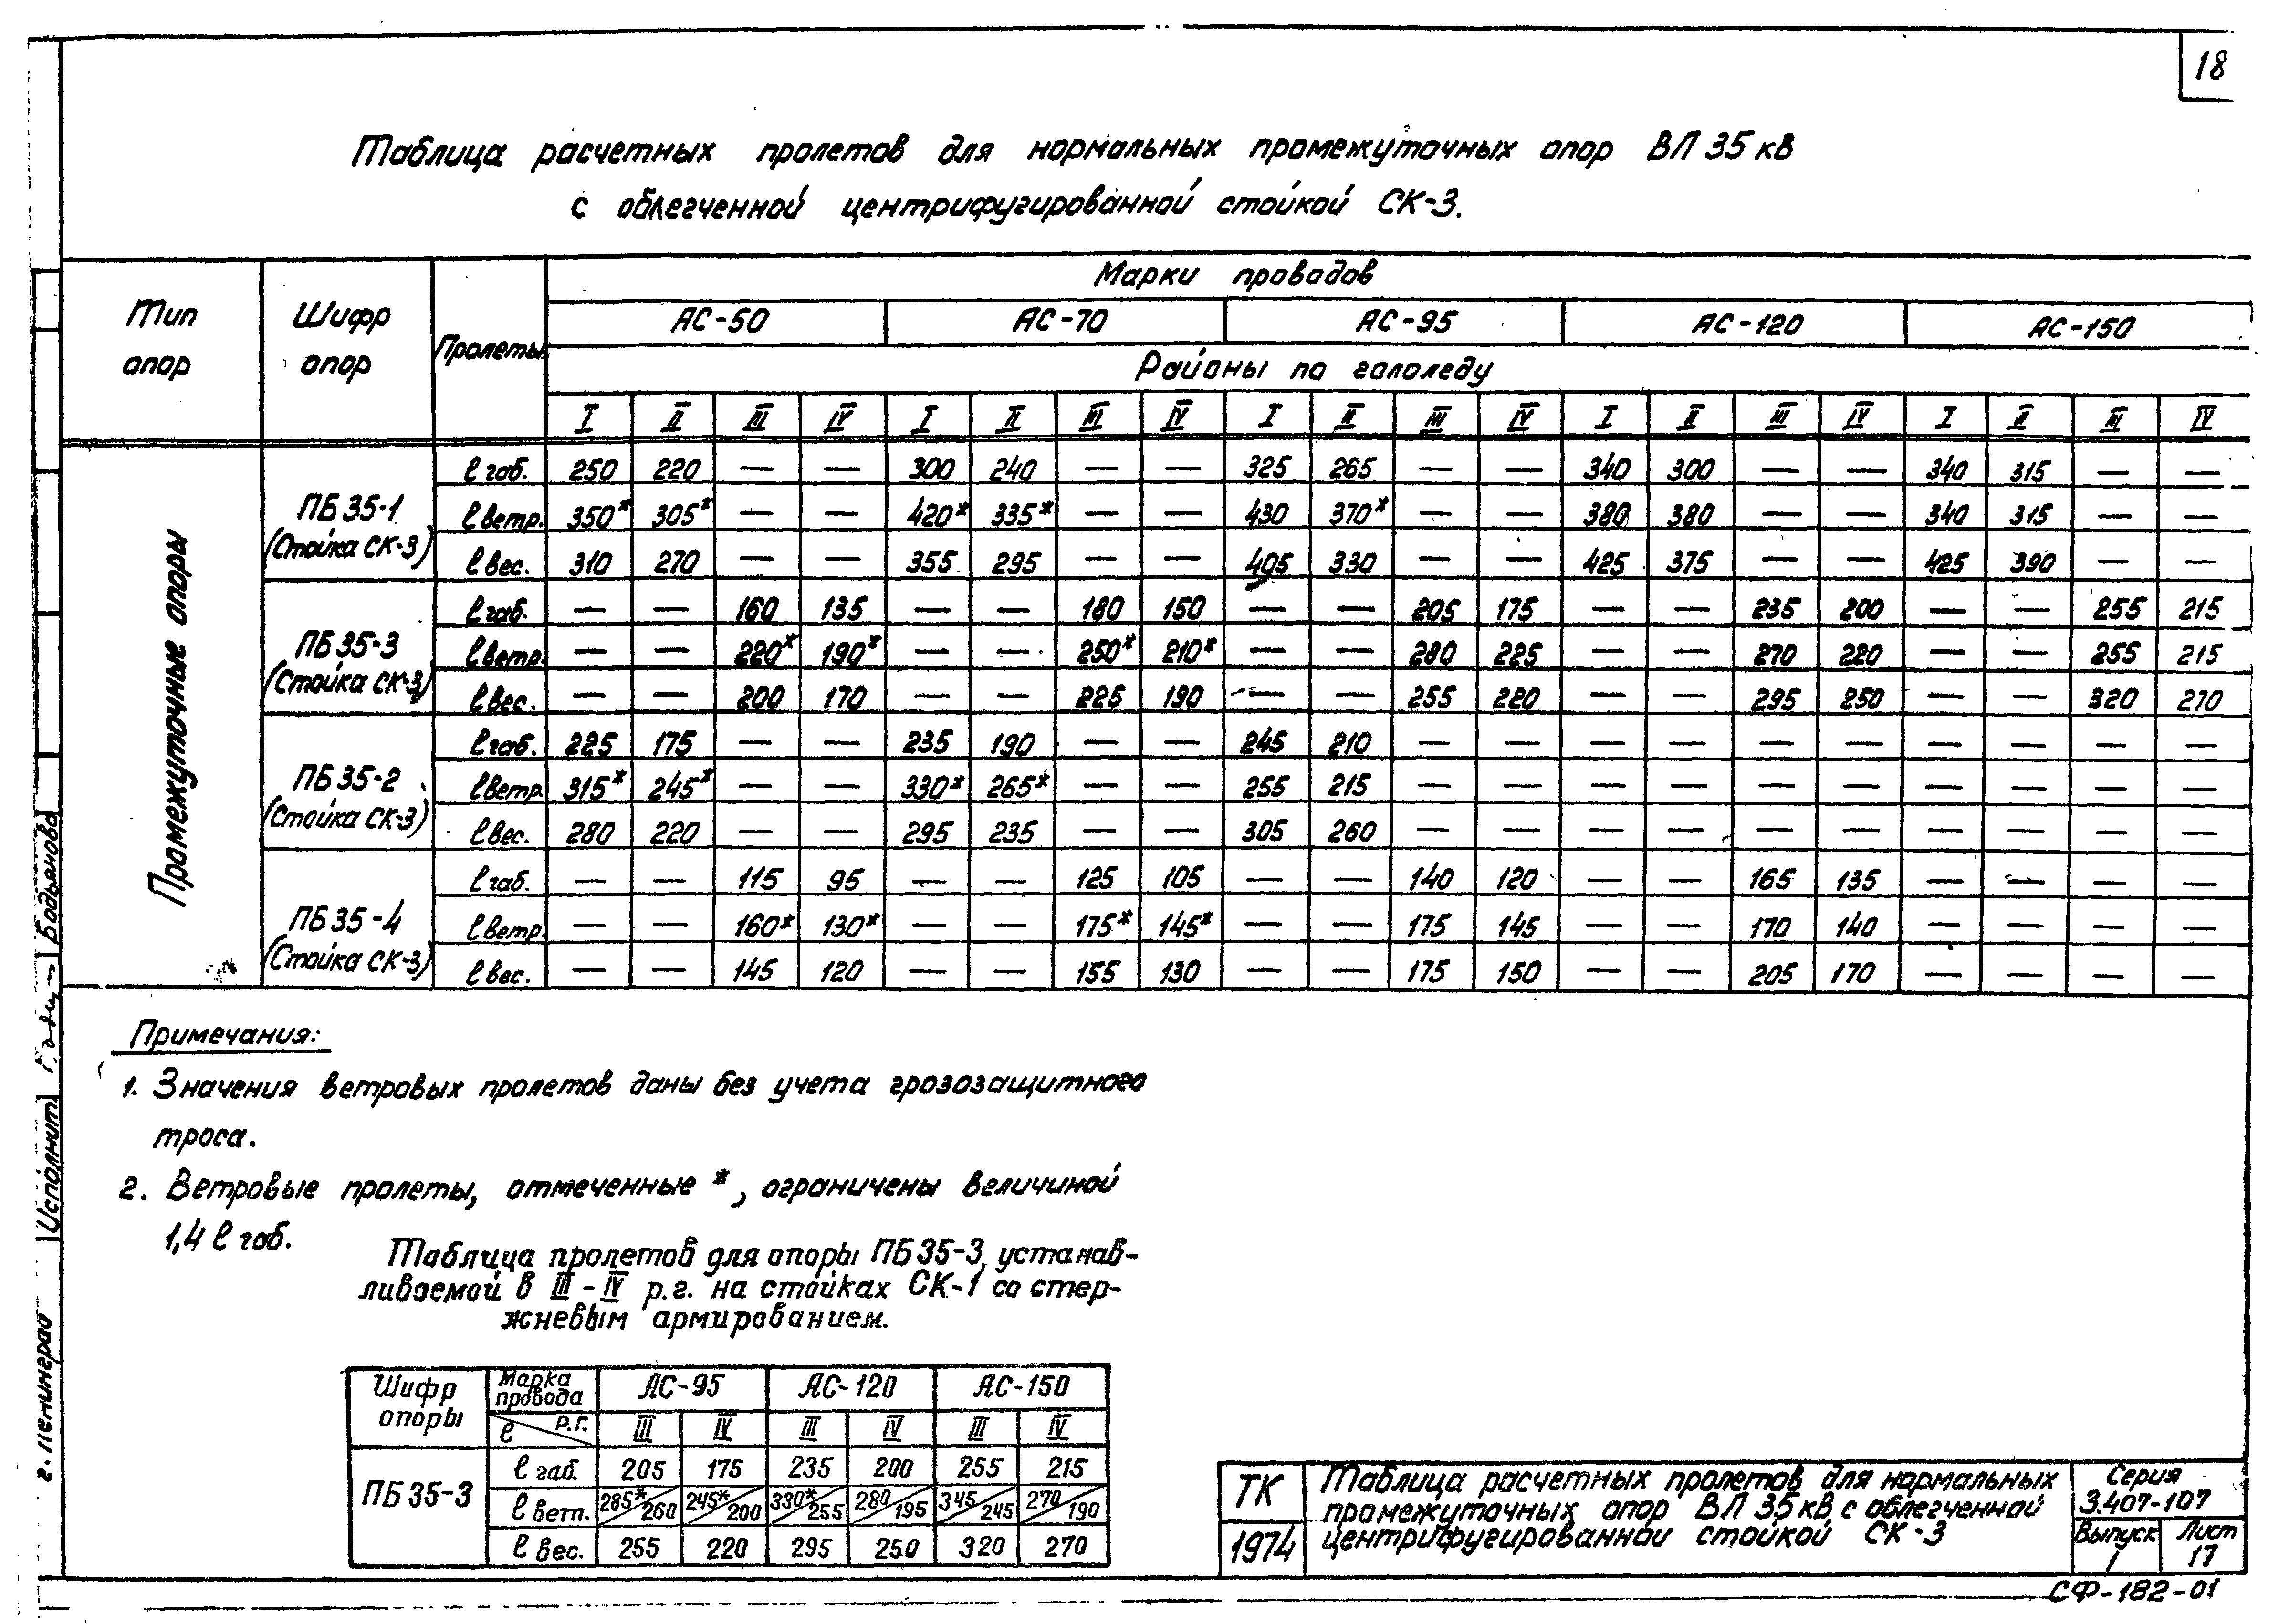 18
Таблица расчетных пролетов для нормальных промежуточных опор ВЛ 35 кв
с облегченной центрифугированной стойкой СК-3.
Тип опор Шифр опор Пролеты Марки проводов
АС-50 АС-70 АС-95 АС-120 АС-150
Районы по гололеду
I II III IV I II III IV I II III IV I II III IV I II III IV
Промежуточные опоры
ПБ 35-1 (Стойка СК-3)
l габ. 250 220 — — 300 240 — — 325 265 — — 340 300 — — 340 315 — —
l ветр. 350* 305* — — 420* 335* — — 430 370* — — 380 380 — — 340 315 — —
l вес. 310 270 — — 355 295 — — 405 330 — — 425 375 — — 425 390 — —
ПБ 35-3 (Стойка СК-3)
l габ. — — 160 135 — — 180 150 — — 205 175 — — 235 200 — — 255 215
l ветр. — — 220* 190* — — 250* 210* — — 280 225 — — 270 220 — — 255 215
l вес. — — 200 170 — — 225 190 — — 255 220 — — 295 250 — — 320 270
ПБ 35-2 (Стойка СК-3)
l габ. 225 175 — — 235 190 — — 245 210 — — — — — — — — — —
l ветр. 315* 245* — — 330* 265* — — 255 215 — — — — — — — — — —
l вес. 280 220 — — 295 235 — — 305 260 — — — — — — — — — —
ПБ 35-4 (Стойка СК-3)
l габ. — — 115 95 — — 125 105 — — 140 120 — — 165 135 — — — —
l ветр. — — 160* 130* — — 175* 145* — — 175 145 — — 170 140 — — — —
l вес. — — 145 120 — — 155 130 — — 175 150 — — 205 170 — — — —
Примечания:
1. Значения ветровых пролетов даны без учета грозозащитного
троса.
2. Ветровые пролеты, отмеченные *, ограничены величиной
1,4 l габ.
Таблица пролетов для опоры ПБ 35-3, устанав-
ливаемой в III-IV р.г. на стойках СК-1 со стер-
жневым армированием.
Шифр опоры Марка провода АС-95 АС-120 АС-150
l р.г. III IV III IV III IV
ПБ 35-3
l габ. 205 175 235 200 255 215
l ветп. 285*/260 245*/200 330*/255 280/195 345/245 270/190
l вес. 255 220 295 250 320 270
ТК
1974
Таблица расчетных пролетов для нормальных
промежуточных опор ВЛ 35 кв с облегченной
центрифугированной стойкой СК-3
Серия
3.407-107
Выпуск Лист
1 17
СФ-182-01
г. Ленинград
Исполнит.
Бодьянова